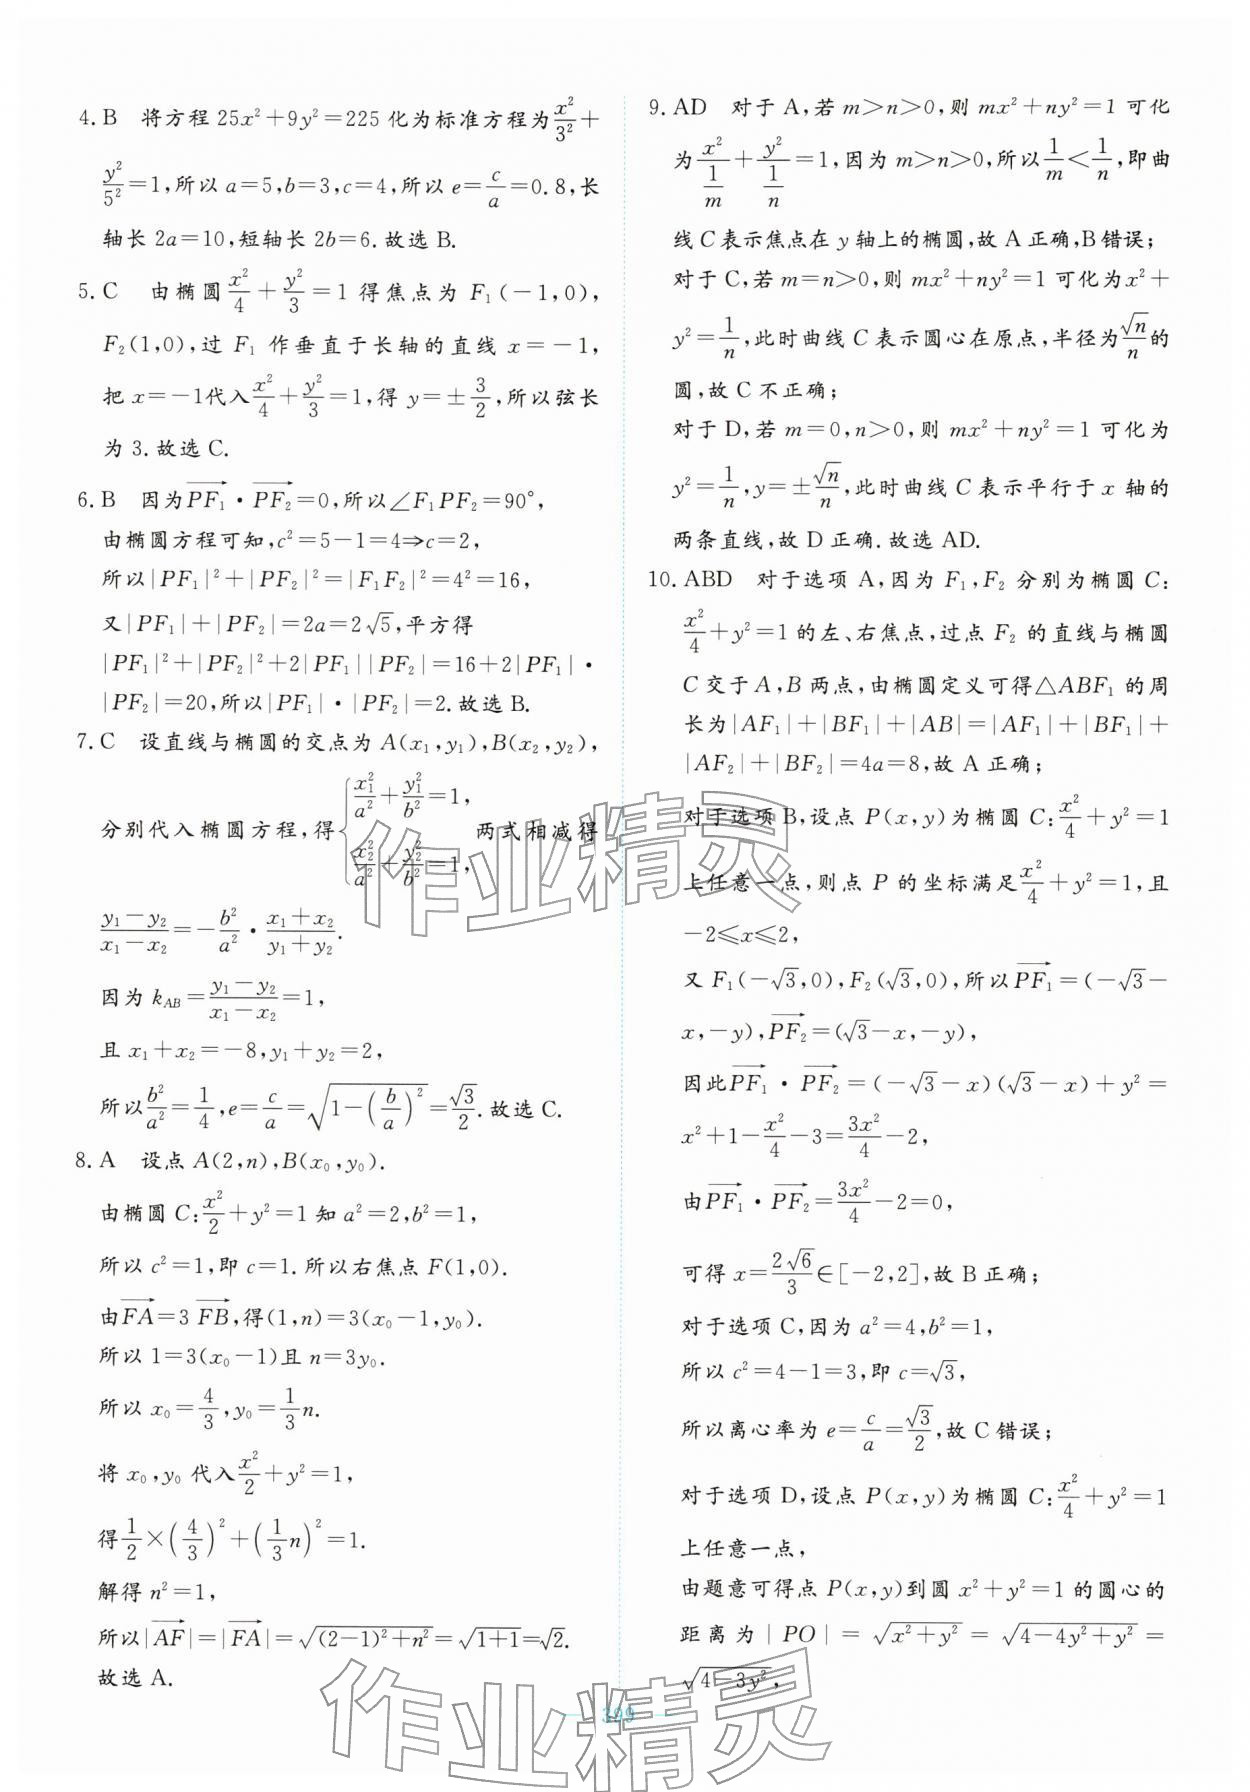 4. B　将方程 25x²+9y²=225 化为标准方程为x²/3²+
y²/5²=1,所以 a=5,b=3,c=4,所以 e=c/a=0.8,长
轴长 2a=10,短轴长 2b=6.故选 B.
5. C　由椭圆x²/4+y²/3=1 得焦点为 F₁(-1,0),
F₂(1,0),过 F₁ 作垂直于长轴的直线 x=-1,
把 x=-1代入x²/4+y²/3=1,得 y=±3/2,所以弦长
为 3.故选 C.
6. B　因为→PF₁·→PF₂=0,所以∠F₁PF₂=90°,
由椭圆方程可知,c²=5-1=4⇒c=2,
所以|PF₁|²+|PF₂|²=|F₁F₂|²=4²=16,
又|PF₁|+|PF₂|=2a=2√5,平方得
|PF₁|²+|PF₂|²+2|PF₁||PF₂|=16+2|PF₁|·
|PF₂|=20,所以|PF₁|·|PF₂|=2.故选 B.
7. C　设直线与椭圆的交点为 A(x₁,y₁),B(x₂,y₂),
分别代入椭圆方程,得{x₁²/a²+y₁²/b²=1, x₂²/a²+y₂²/b²=1, 两式相减得
(y₁-y₂)/(x₁-x₂)=-b²/a²·(x₁+x₂)/(y₁+y₂).
因为 k_AB=(y₁-y₂)/(x₁-x₂)=1,
且 x₁+x₂=-8,y₁+y₂=2,
所以b²/a²=1/4,e=c/a=√(1-(b/a)²)=√3/2.故选 C.
8. A　设点 A(2,n),B(x₀,y₀).
由椭圆 C:x²/2+y²=1 知 a²=2,b²=1,
所以 c²=1,即 c=1.所以右焦点 F(1,0).
由→FA=3 →FB,得(1,n)=3(x₀-1,y₀).
所以 1=3(x₀-1)且 n=3y₀.
所以 x₀=4/3,y₀=1/3n.
将 x₀,y₀ 代入x²/2+y²=1,
得1/2×(4/3)²+(1/3n)²=1.
解得 n²=1,
所以|→AF|=|→FA|=√((2-1)²+n²)=√(1+1)=√2.
故选 A.
9. AD　对于 A,若 m>n>0,则 mx²+ny²=1 可化
为x²/(1/m)+y²/(1/n)=1,因为 m>n>0,所以1/m<1/n,即曲
线 C表示焦点在 y 轴上的椭圆,故 A 正确,B错误;
对于 C,若 m=n>0,则 mx²+ny²=1 可化为x²+
y²=1/n,此时曲线 C 表示圆心在原点,半径为√n/n的
圆,故 C 不正确;
对于 D,若 m=0,n>0,则 mx²+ny²=1 可化为
y²=1/n,y=±√n/n,此时曲线 C 表示平行于 x 轴的
两条直线,故 D 正确.故选 AD.
10. ABD　对于选项 A,因为 F₁,F₂ 分别为椭圆 C:
x²/4+y²=1 的左、右焦点,过点 F₂ 的直线与椭圆
C交于 A,B 两点,由椭圆定义可得△ABF₁ 的周
长为|AF₁|+|BF₁|+|AB|=|AF₁|+|BF₁|+
|AF₂|+|BF₂|=4a=8,故 A 正确;
对于选项 B,设点 P(x,y)为椭圆 C:x²/4+y²=1
上任意一点,则点 P 的坐标满足x²/4+y²=1,且
-2≤x≤2,
又 F₁(-√3,0),F₂(√3,0),所以→PF₁=(-√3-
x,-y),→PF₂=(√3-x,-y),
因此→PF₁·→PF₂=(-√3-x)(√3-x)+y²=
x²+1-x²/4-3=3x²/4-2,
由→PF₁·→PF₂=3x²/4-2=0,
可得 x=2√6/3∈[-2,2],故 B 正确;
对于选项 C,因为 a²=4,b²=1,
所以 c²=4-1=3,即 c=√3,
所以离心率为 e=c/a=√3/2,故 C 错误;
对于选项 D,设点 P(x,y)为椭圆 C:x²/4+y²=1
上任意一点,
由题意可得点 P(x,y)到圆 x²+y²=1 的圆心的
距离为|PO|=√(x²+y²)=√(4-4y²+y²)=
√(4-3y²),
399
作业精灵
作业精灵